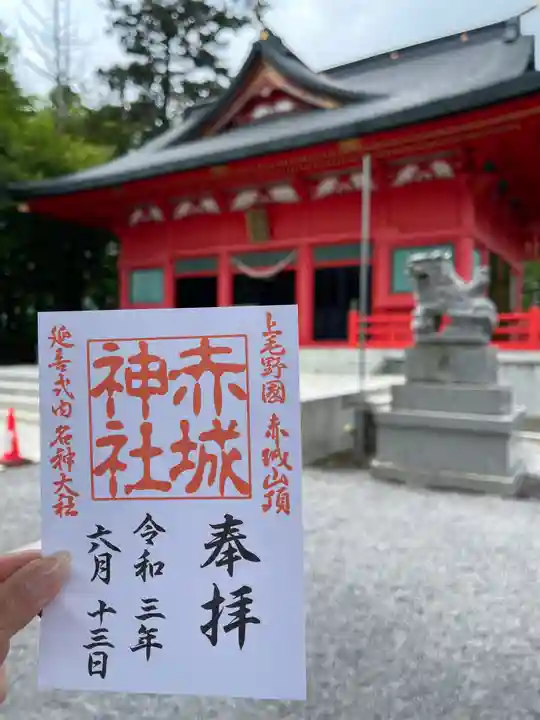 上毛野國 赤城山頂
赤城
神社
延喜式内 名神大社
奉拝
令和三年
六月十三日